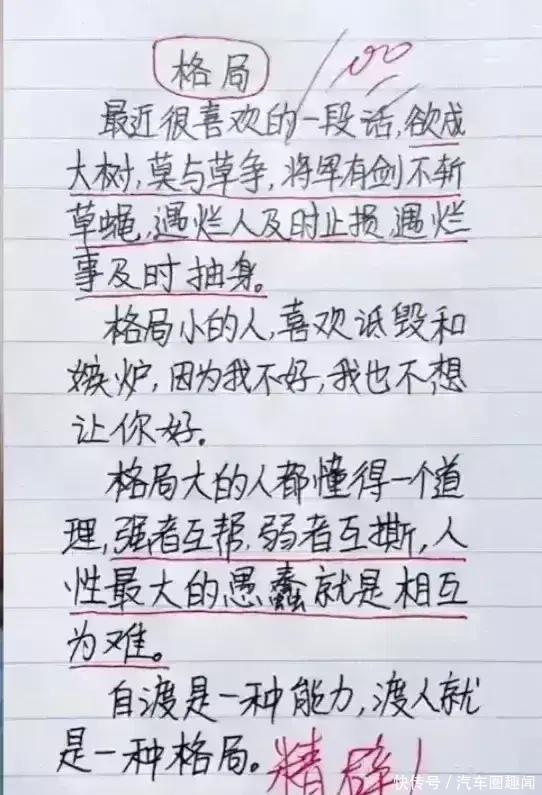 格局
100
最近很喜欢的一段话,欲成
大树,莫与草争,将军有剑不斩
草蝇,遇烂人及时止损,遇烂
事及时抽身。
格局小的人,喜欢诋毁和
嫉炉,因为我不好,我也不想
让你好。
格局大的人都懂得一个道
理,强者互帮,弱者互撕,人
性最大的愚蠢就是相互
为难。
自渡是一种能力,渡人就
是一种格局。
精辟！
快传号／汽车圈趣闻